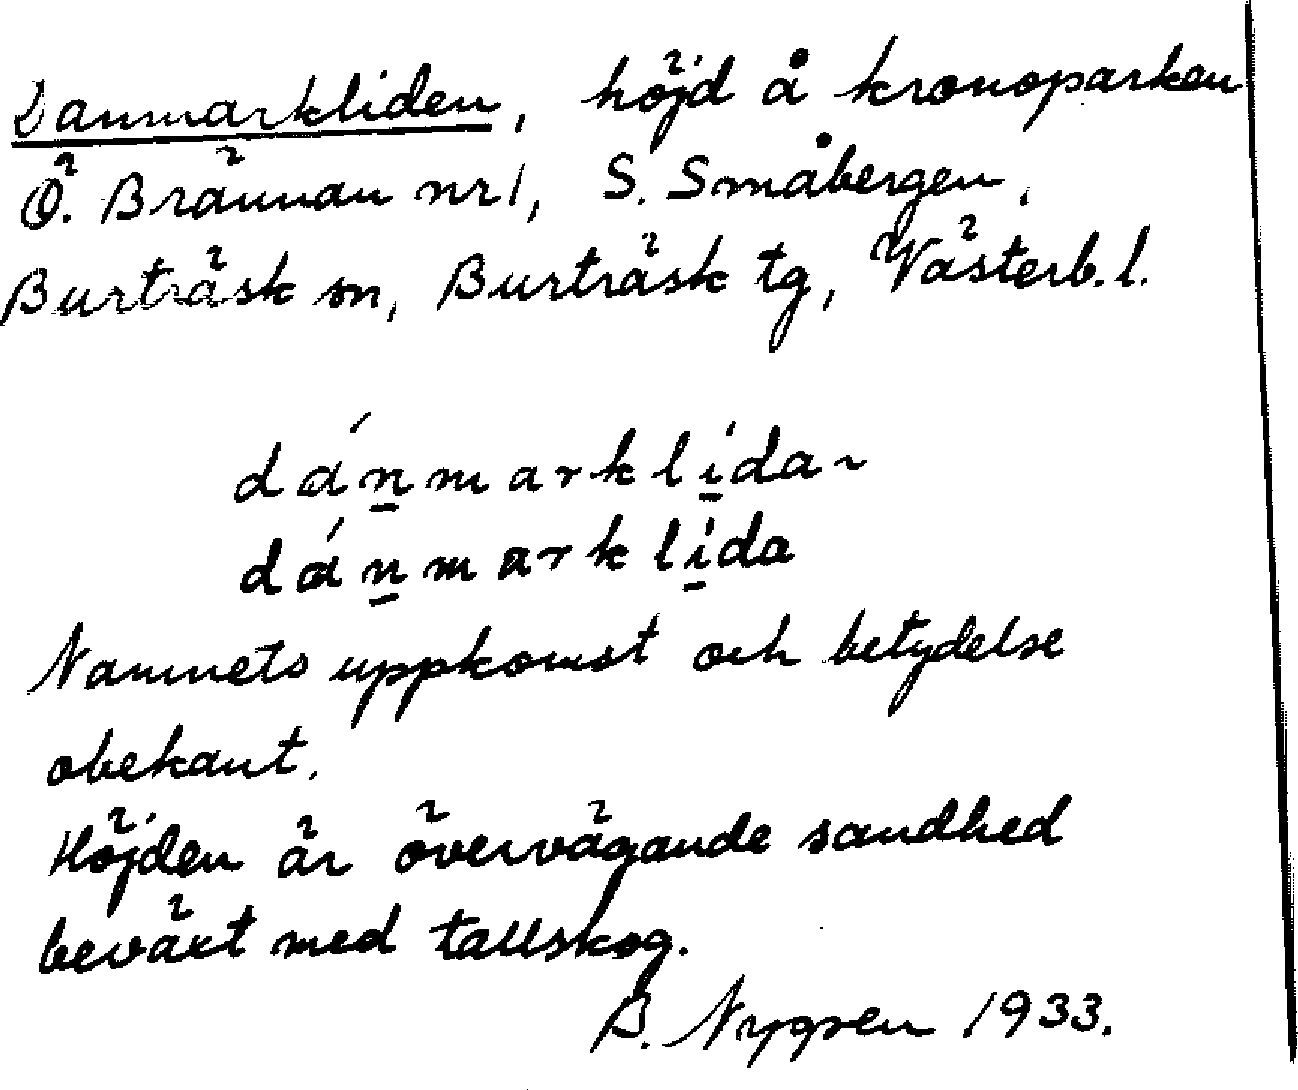 Danmarkliden, höjd å kronoparken
Ö. Brännan nr 1, S. Småbergen,
Burträsk sn, Burträsk tg, Västerb. l.
dánmarklida~
dánmarklida
Namnets uppkomst och betydelse
obekant.
Höjden är övervägande sandhed
beväxt med tallskog.
B. Nygren 1933.